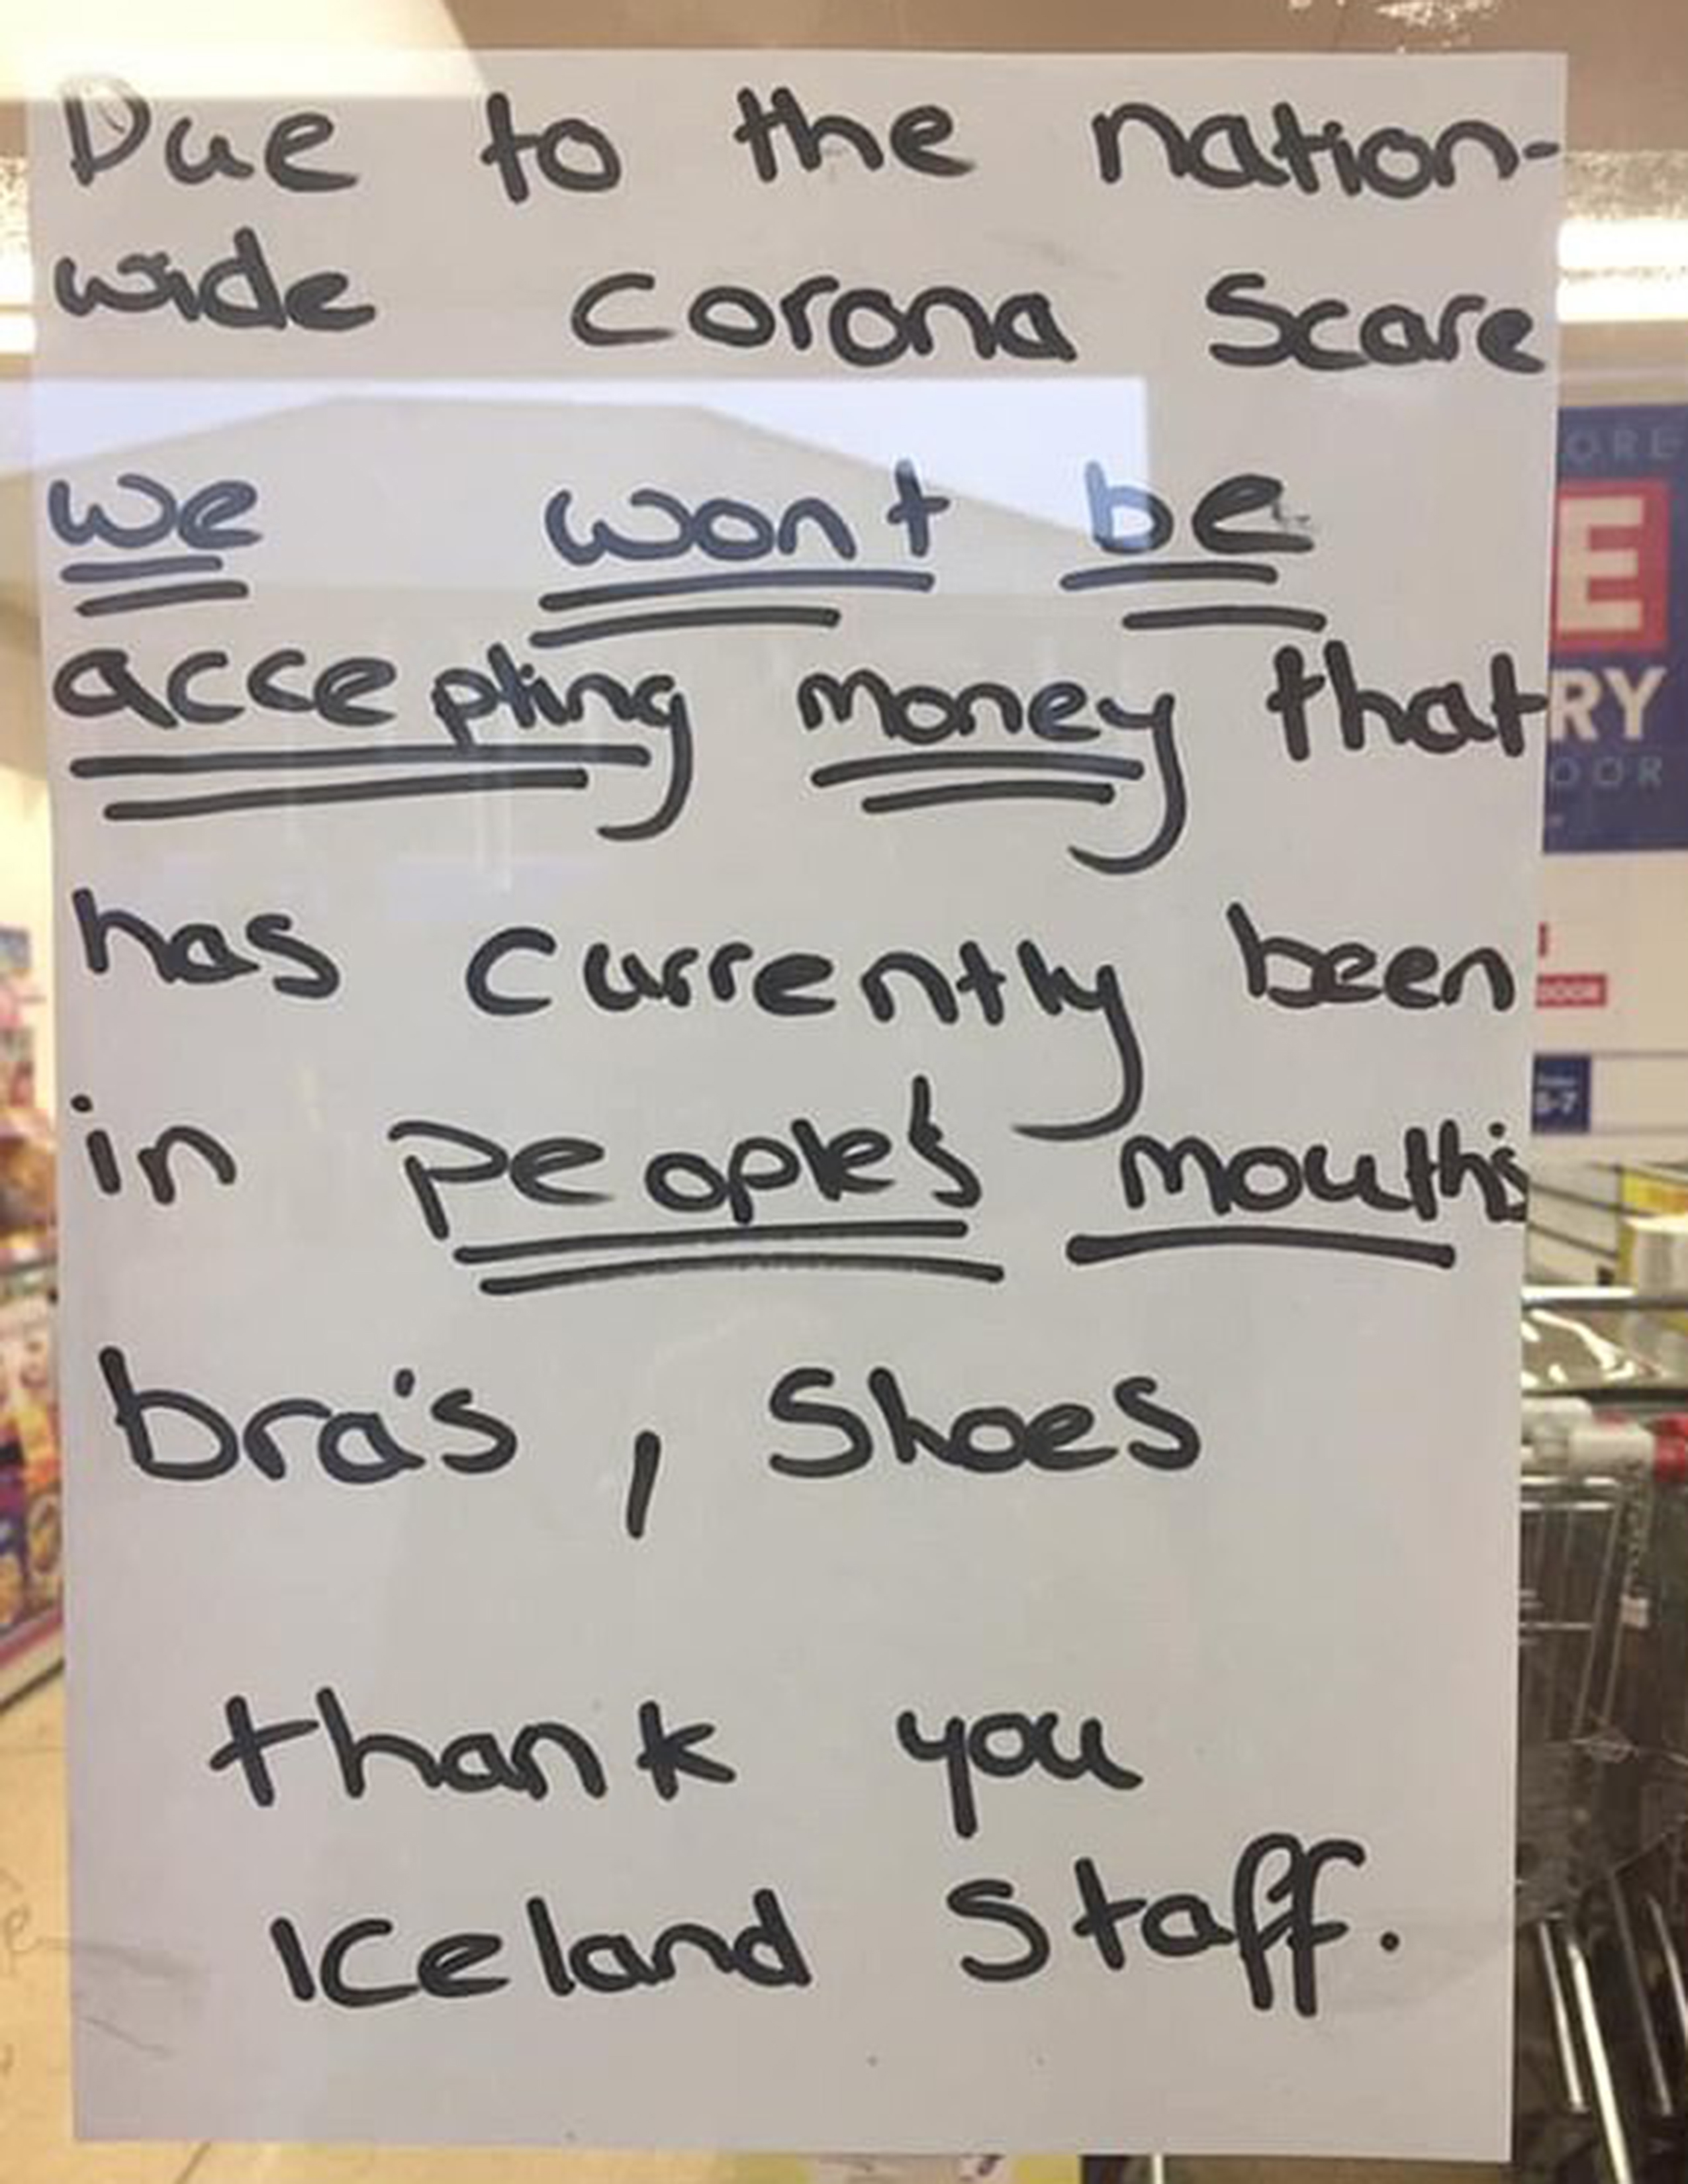 Due to the nation-
wide corona Scare
we wont be
accepting money that
has currently been
in people's mouth's
bra's , Shoes
thank you
Iceland Staff.
ORE
E
RY
OOR
8-7